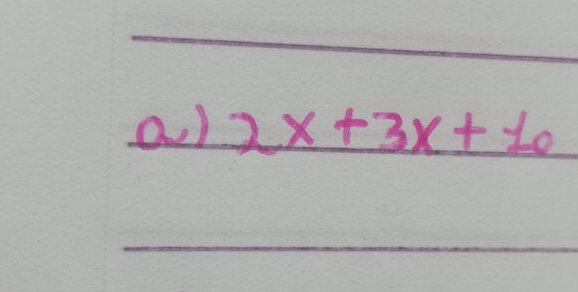 a) 2x+3x+10